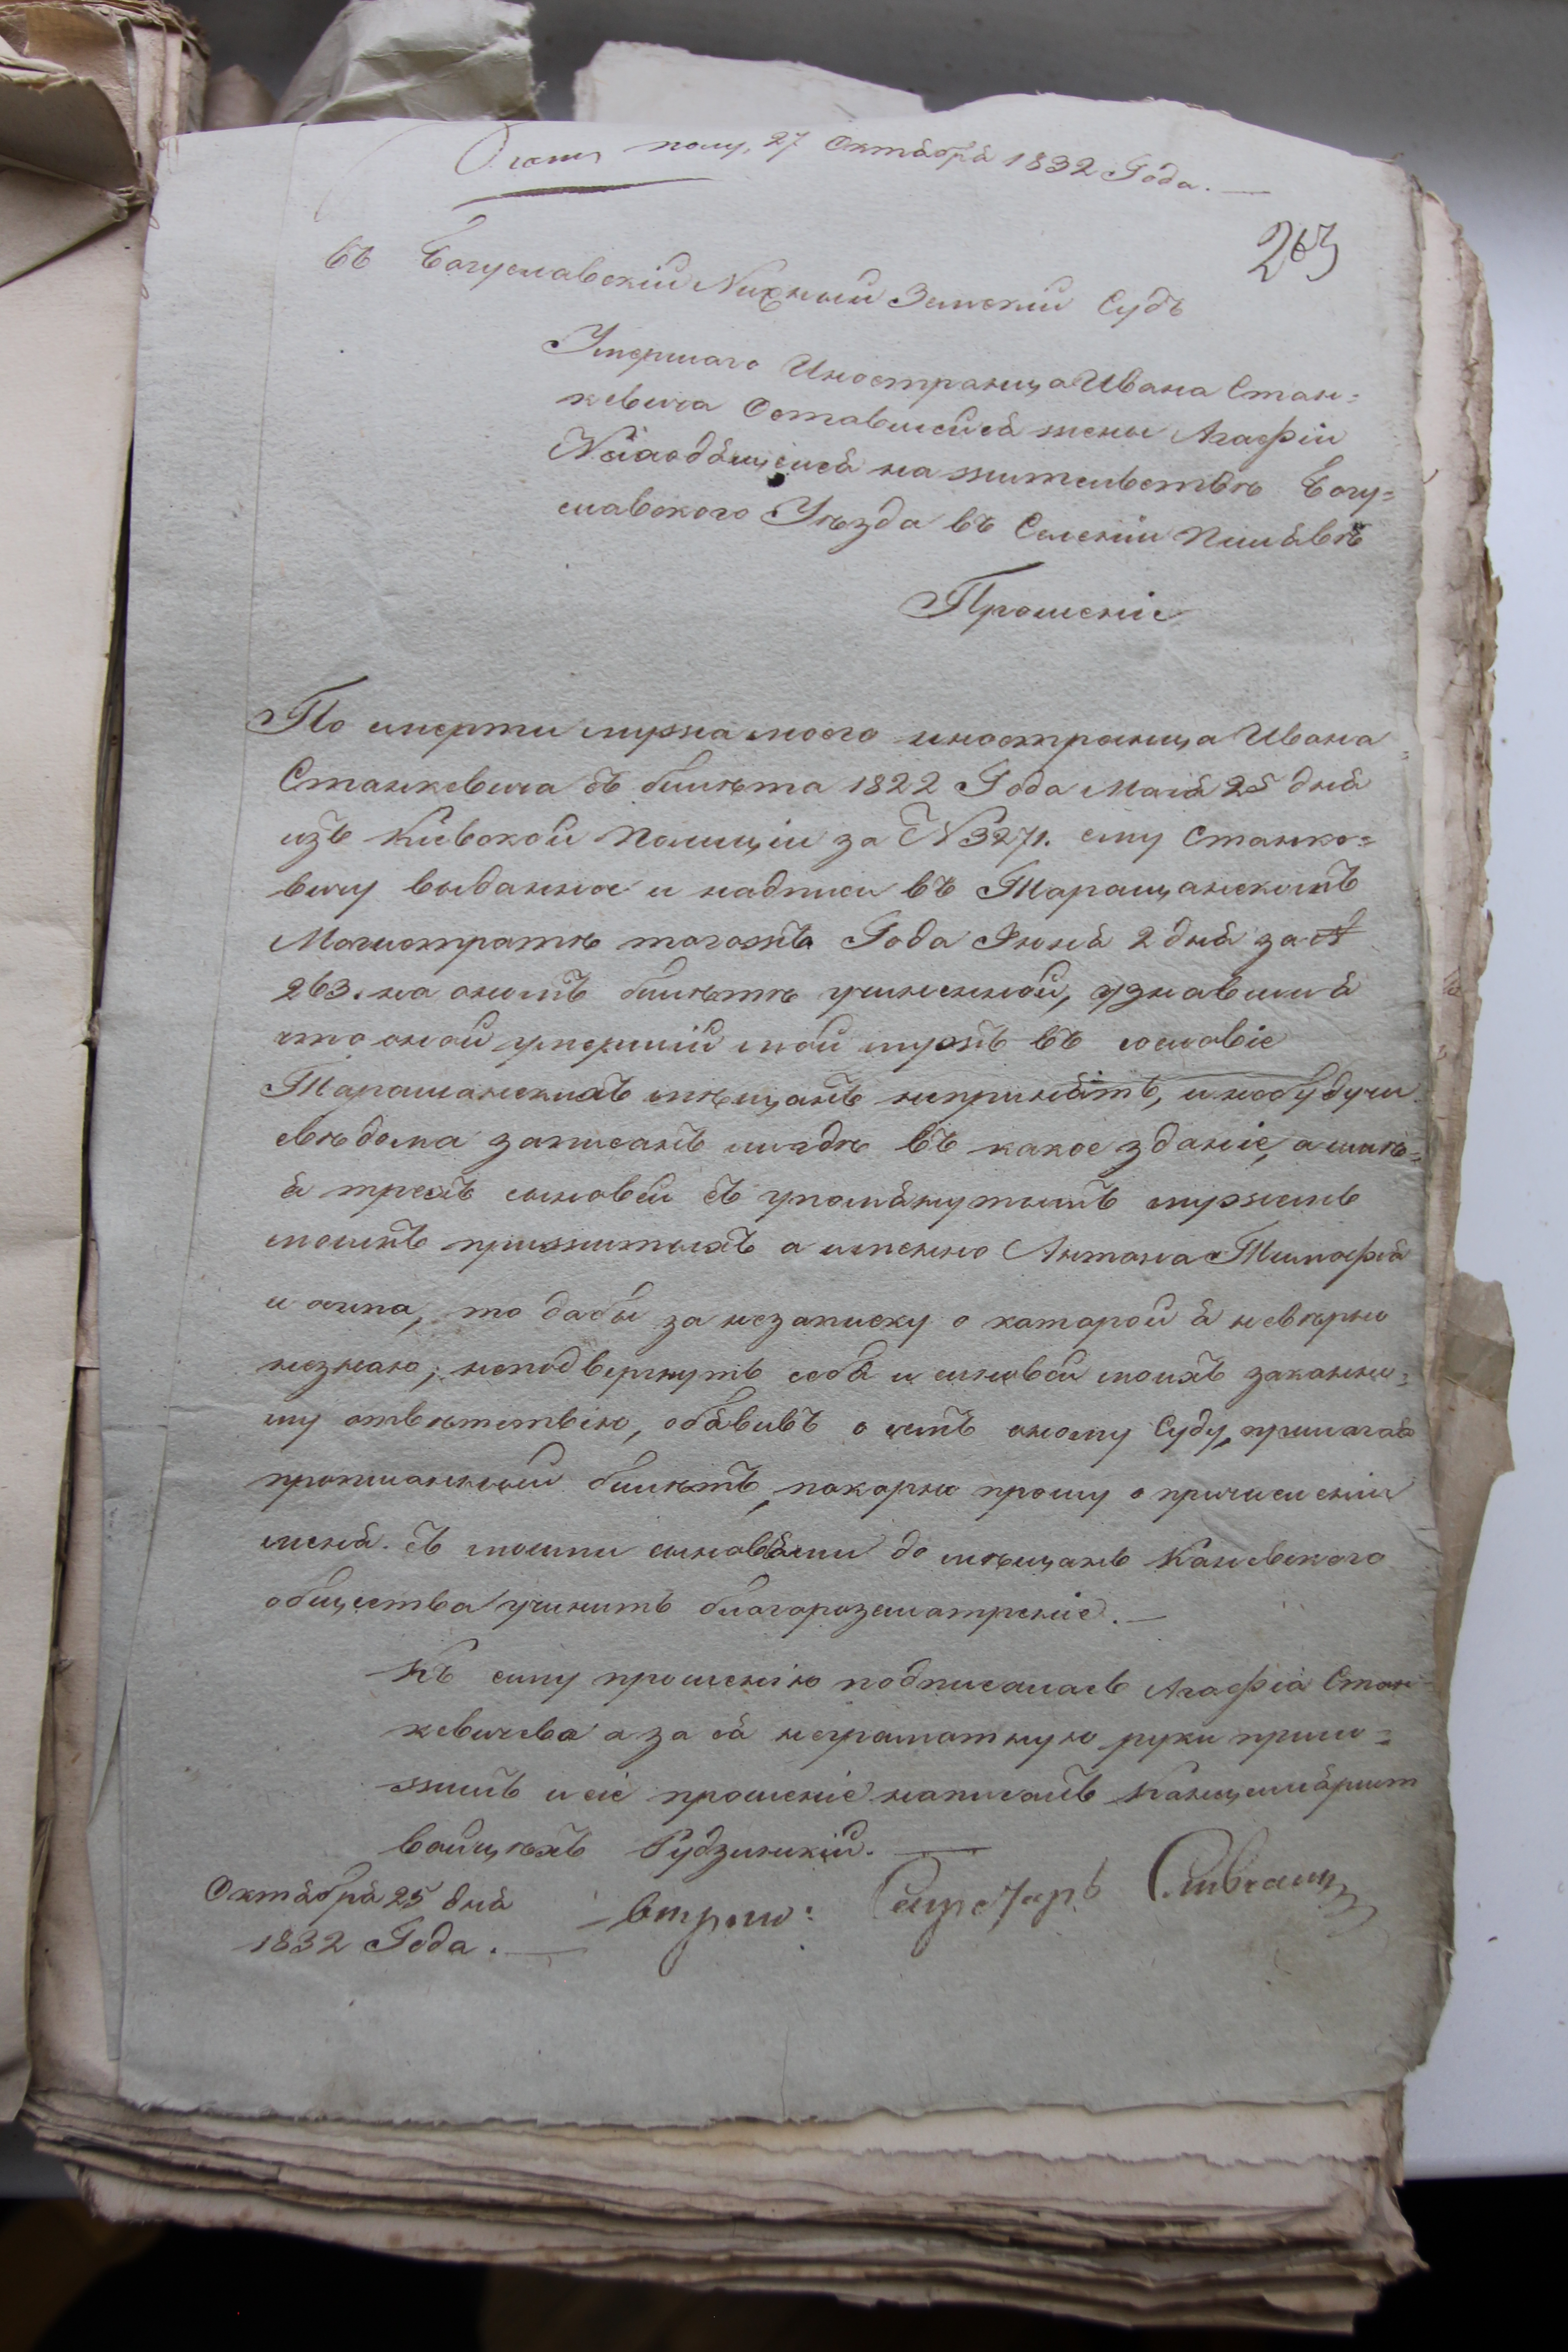 полу. 27 Октября 1832 Года.
263
Въ Богуславскій Нижный Земскій Судъ
Умершаго Иностранца Ивана Стан=
кевича Оставшейся жены Агафіи
Находящейся на жительствѣ Богу=
славского Уѣзда въ Селеніи Пилявѣ
Прошеніе
По смерти мужа моего иностранца Ивана
Станкевича съ билѣта 1822 Года Маія 25 дня
изъ Кіевской Полиціи за N 3271. ему Станко=
вичу выданное и надписи въ Таращанскомъ
Магистратѣ тогожъ Года Іюня 2 дня за N
263. на ономъ билѣтѣ учиненной, узнавшы я
что оной умершій мой мужъ въ сословіе
Таращанскихъ мѣщанъ непринятъ, и небудучи
свѣдома записанъ ли гдѣ въ какое зданіе, а имѣ=
я трехъ сыновей съ упомянутымъ мужемъ
моимъ прижитыхъ а именно Антона Тимофея
и осипа, то дабы за незаписку о каторой я невѣрно
незнаю, неподвергнуть себя и сыновей моихъ законно=
му отвѣтствію, обявивъ о семъ оному Суду, прилагая
прописанный билѣтъ, покорно прошу о причисленіи
меня съ моими сыновями до мѣщанъ Каневского
общества учинить благоразсмотреніе.
Къ сему прошенію подписалась Агафія Стан=
кевичева а за ея неграматную руки прило=
жилъ и сіе прошеніе написалъ Канцеляристъ
Войцѣхъ Рудзинскій.
Октября 25 дня
1832 Года.